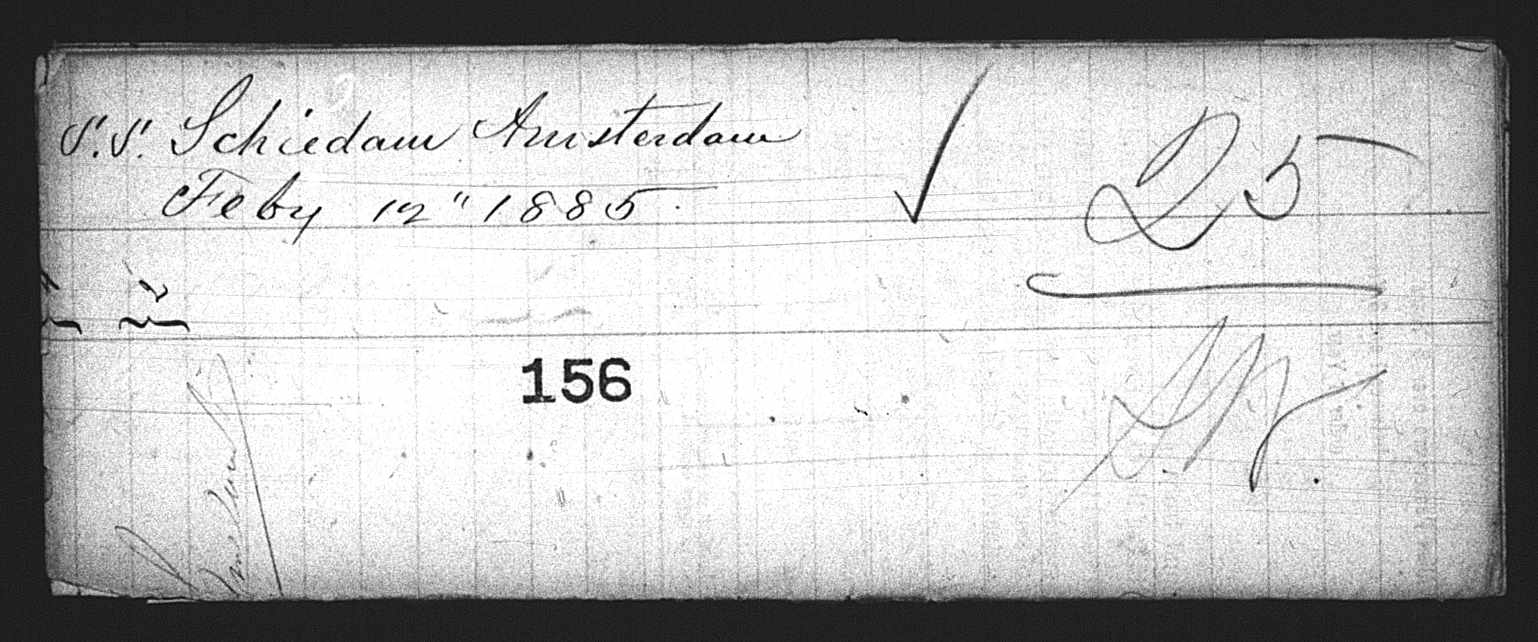 S.S. Schiedam Amsterdam
Feby 12" 1885.
25
156